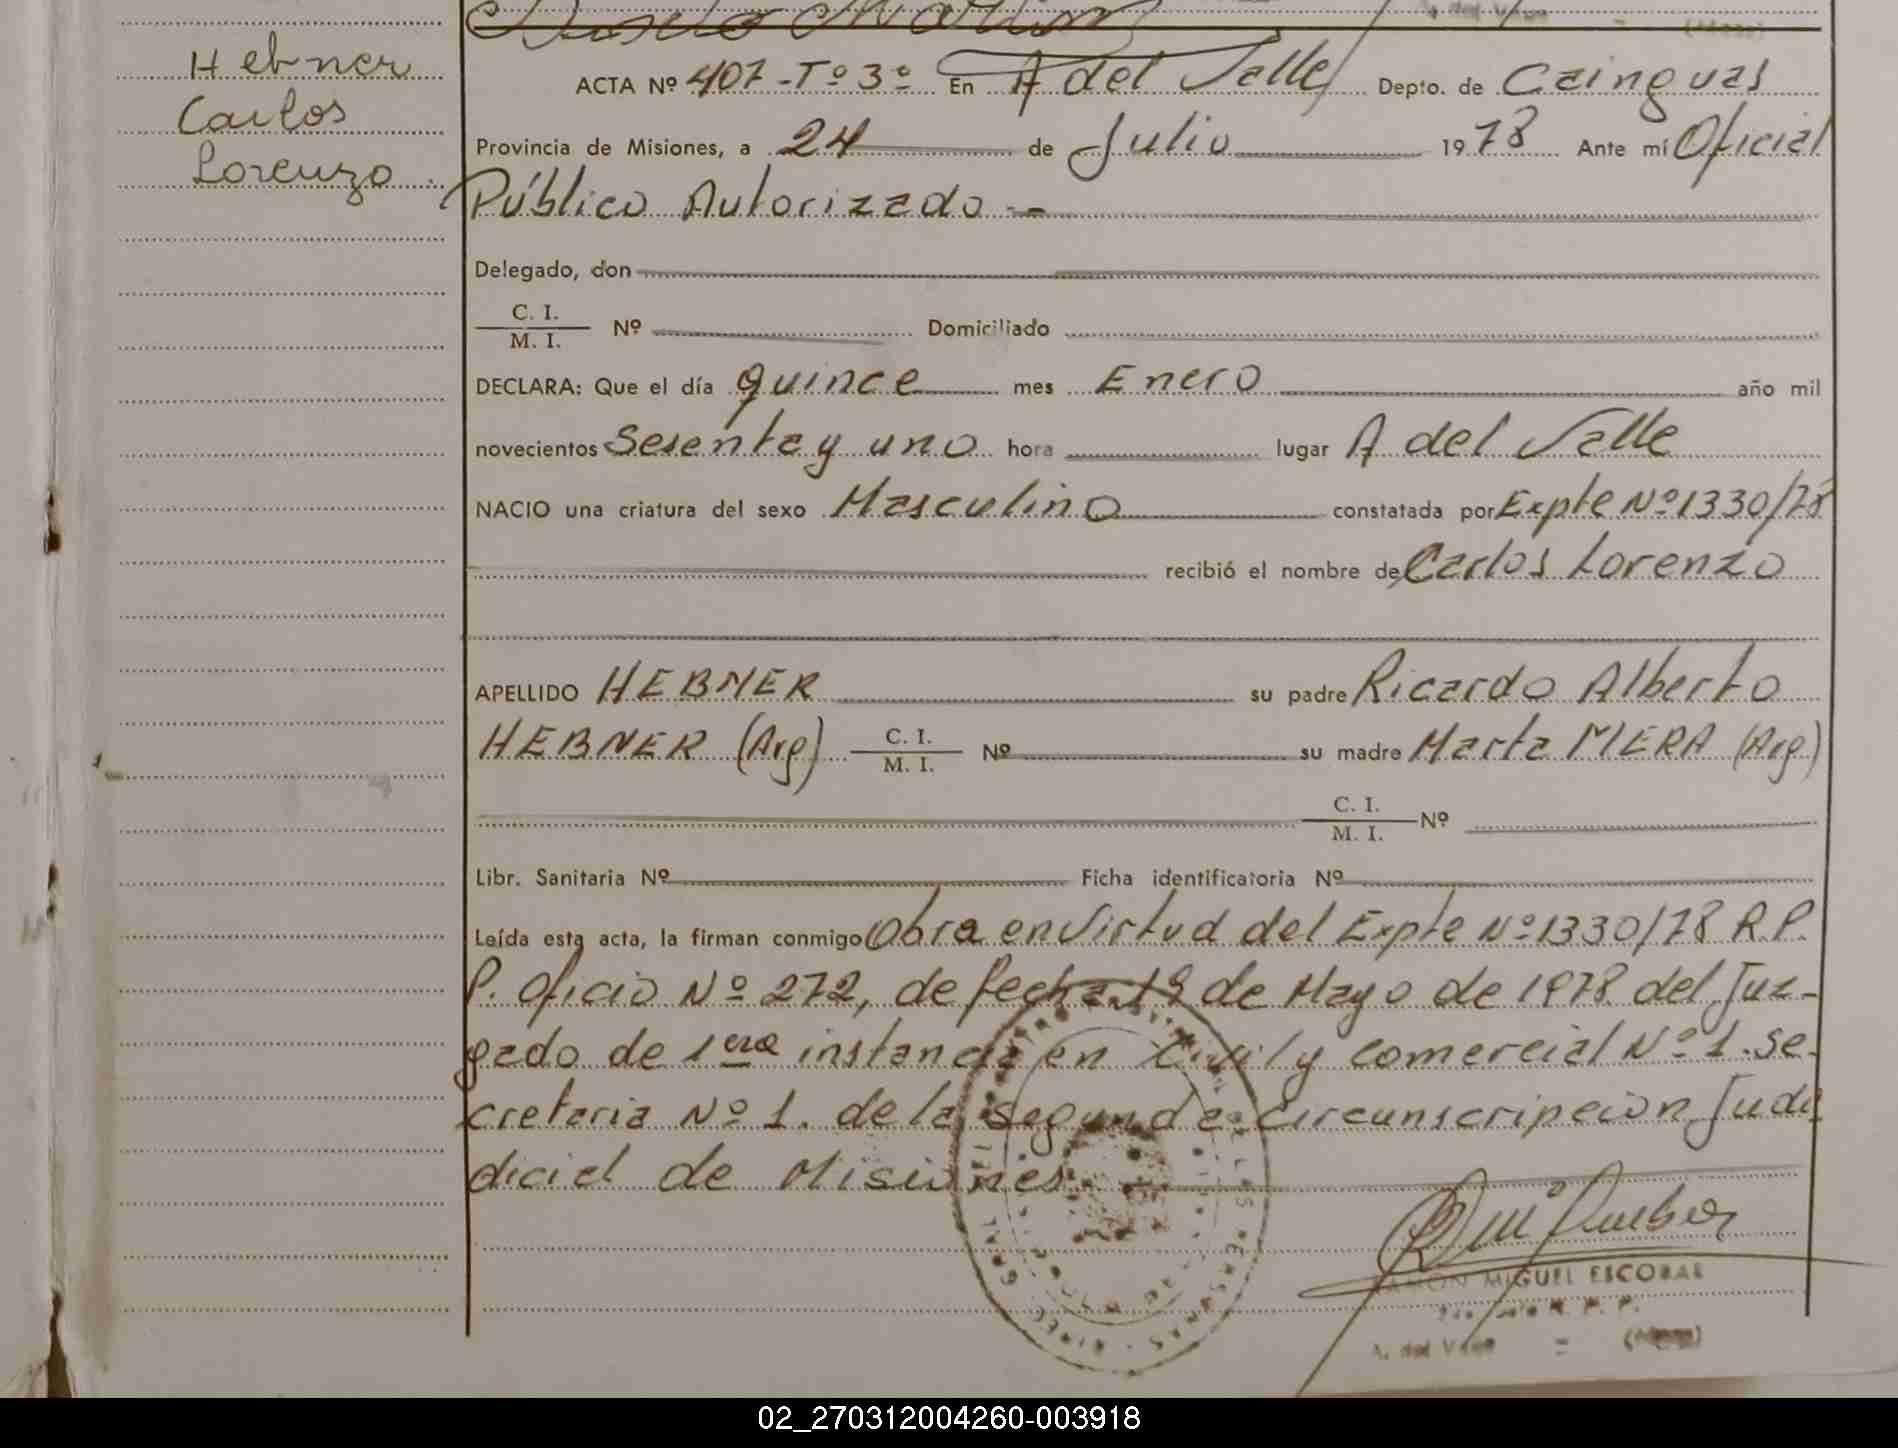 Hebner
Carlos
Lorenzo
ACTA Nº 407-Tº 3º En A del Valle Depto. de Cainguas
Provincia de Misiones, a 24 de Julio 1978 Ante mí Oficial
Público Autorizado --
Delegado, don
C. I.
M. I. Nº Domiciliado
DECLARA: Que el día quince mes Enero año mil
novecientos Sesenta y uno hora lugar A del Valle
NACIO una criatura del sexo Masculino constatada por Expte Nº 1330/78
recibió el nombre de Carlos Lorenzo
APELLIDO HEBNER su padre Ricardo Alberto
HEBNER (Arg) C. I. M. I. Nº su madre Marta MERA (Arg.)
C. I.
M. I. Nº
Libr. Sanitaria Nº Ficha identificatoria Nº
Leída esta acta, la firman conmigo Obra en Virtud del Expte Nº 1330/78 R.P.
P. Oficio Nº 272, de fecha 19 de Mayo de 1978 del Juz-
gado de 1era instancia en Civil y comercial Nº 1. Se-
cretaria Nº 1. de la Segunda Circunscripcion Judi
dicial de Misiones
RAMON MIGUEL ESCOBAR
R. P. P.
A. del Valle = (Mnes)
02_270312004260-003918